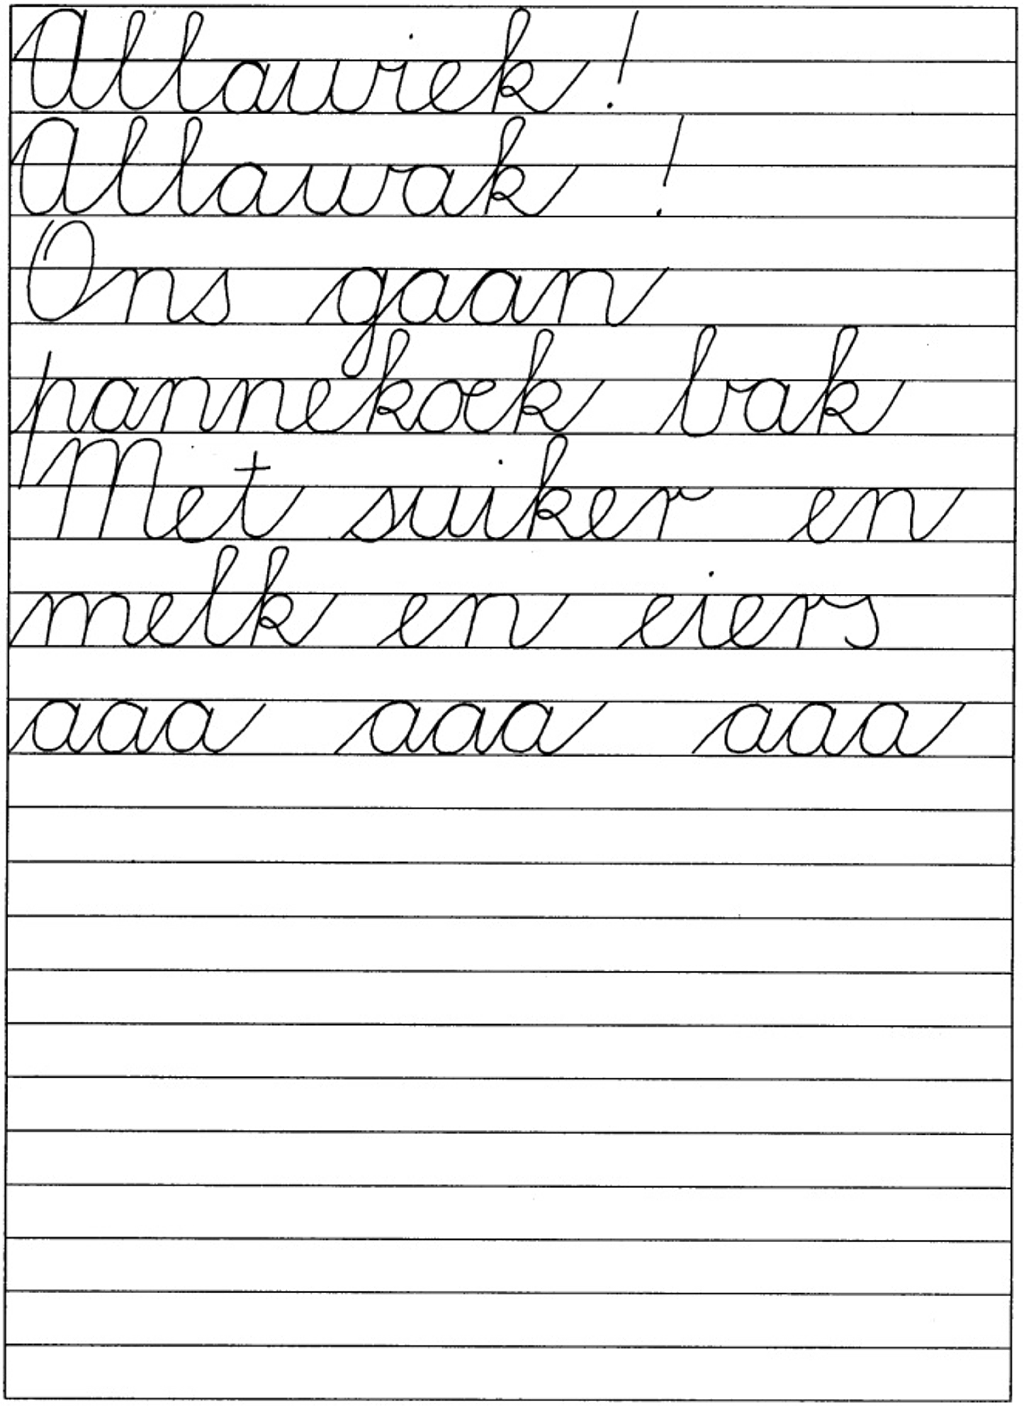 Allawiek!
Allawak!
Ons gaan
pannekoek bak
Met suiker en
melk en eiers
aaa aaa aaa